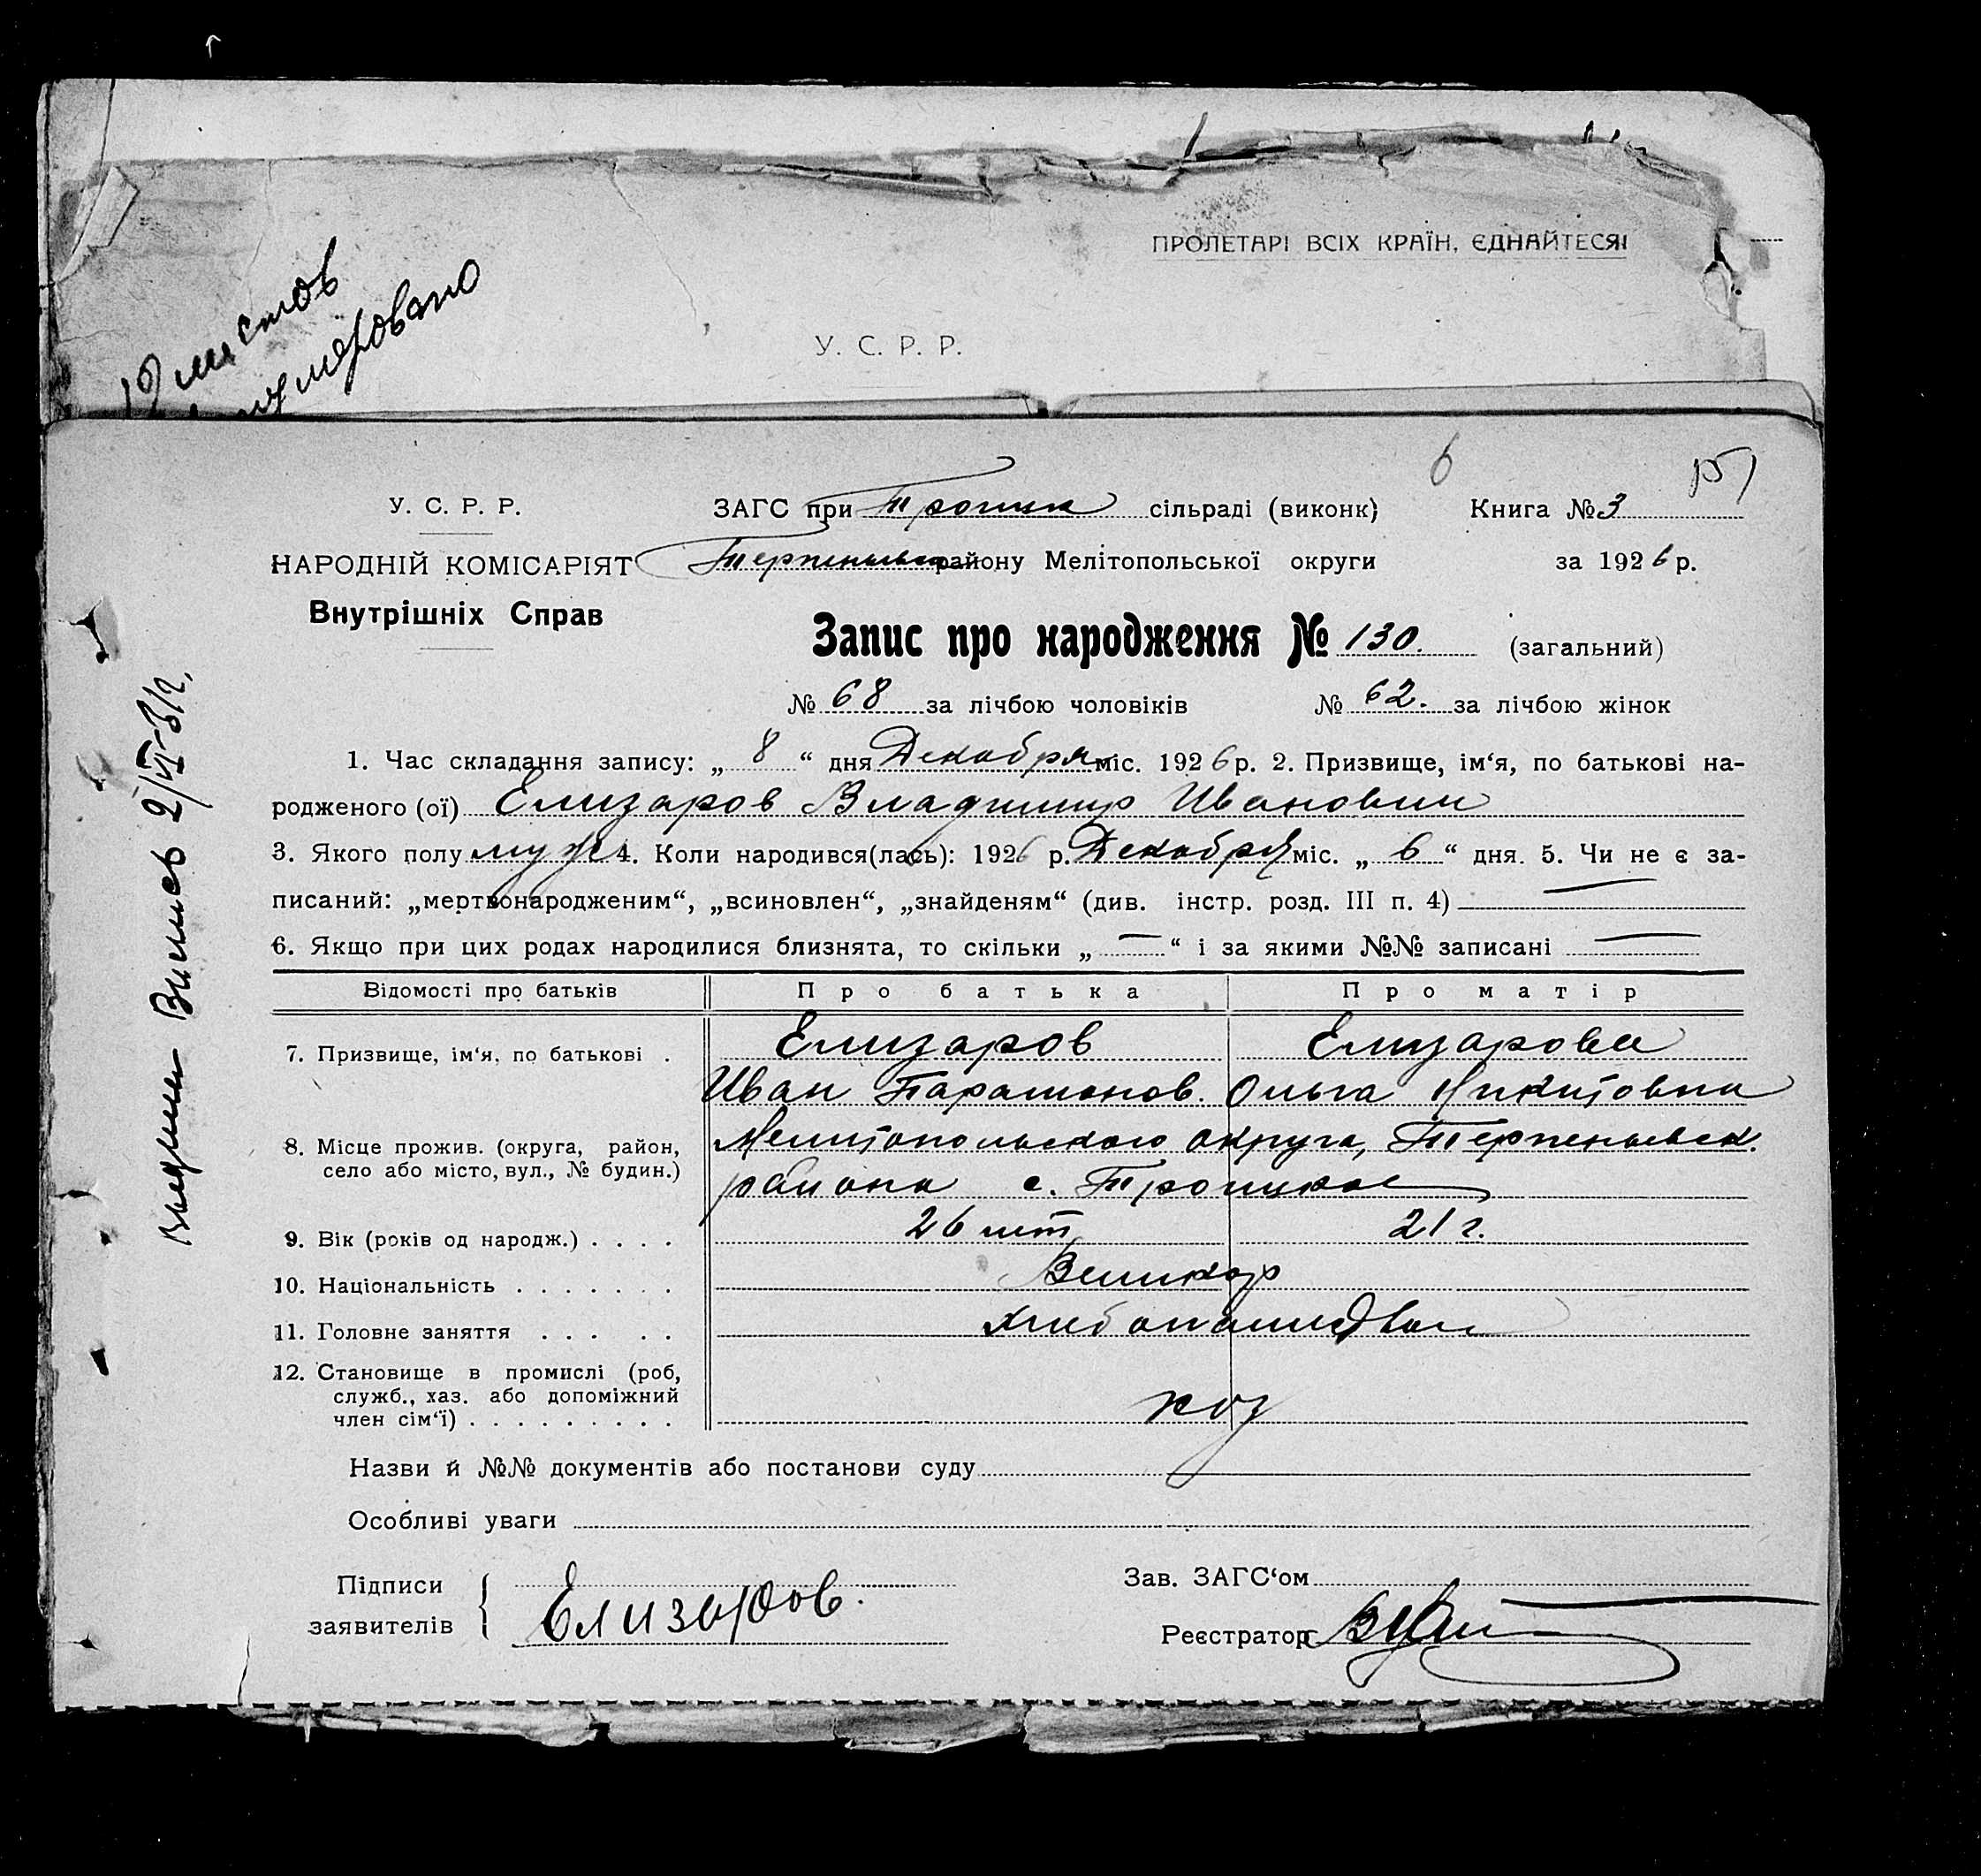 ПРОЛЕТАРІ ВСІХ КРАЇН, ЄДНАЙТЕСЯ!
листов
У. С. Р. Р.
6
151
У. С. Р. Р. ЗАГС при Троицк сільраді (виконк) Книга № 3
НАРОДНІЙ КОМІСАРІЯТ Терпеньевск району Мелітопольської округи за 1926 р.
Внутрішніх Справ
Запис про народження № 130. (загальний)
№ 68 за лічбою чоловіків № 62. за лічбою жінок
1. Час складання запису: „ 8 “ дня Декабря міс. 1926 р. 2. Призвище, ім‘я, по батькові на-
родженого (ої) Елизаров Владимир Иванович
3. Якого полу муж 4. Коли народився(лась): 1926 р. Декабря міс. „ 6 “ дня. 5. Чи не є за-
писаний: „мертвонародженим“, „всиновлен“, „знайденям“ (див. інстр. розд. III п. 4) —
6. Якщо при цих родах народилися близнята, то скільки „ — “ і за якими №№ записані —
Відомості про батьків Про батька Про матір
7. Призвище, ім‘я, по батькові . Елизаров Елизарова
Иван Парамонов. Ольга Никитовна
8. Місце прожив. (округа, район, Мелитопольского округа, Терпеньевск.
село або місто, вул., № будин.) района с. Троицкое
9. Вік (років од народж.) . . . . 26 лет 21 г.
10. Національність . . . . . . . Великор
11. Головне заняття . . . . .
12. Становище в промислі (роб,
служб., хаз. або допоміжний
член сім‘ї) . . . . . . . . . хоз
Назви й №№ документів або постанови суду
Особливі уваги
Підписи Зав. ЗАГС‘ом
заявителів Елизаров. Реєстратор